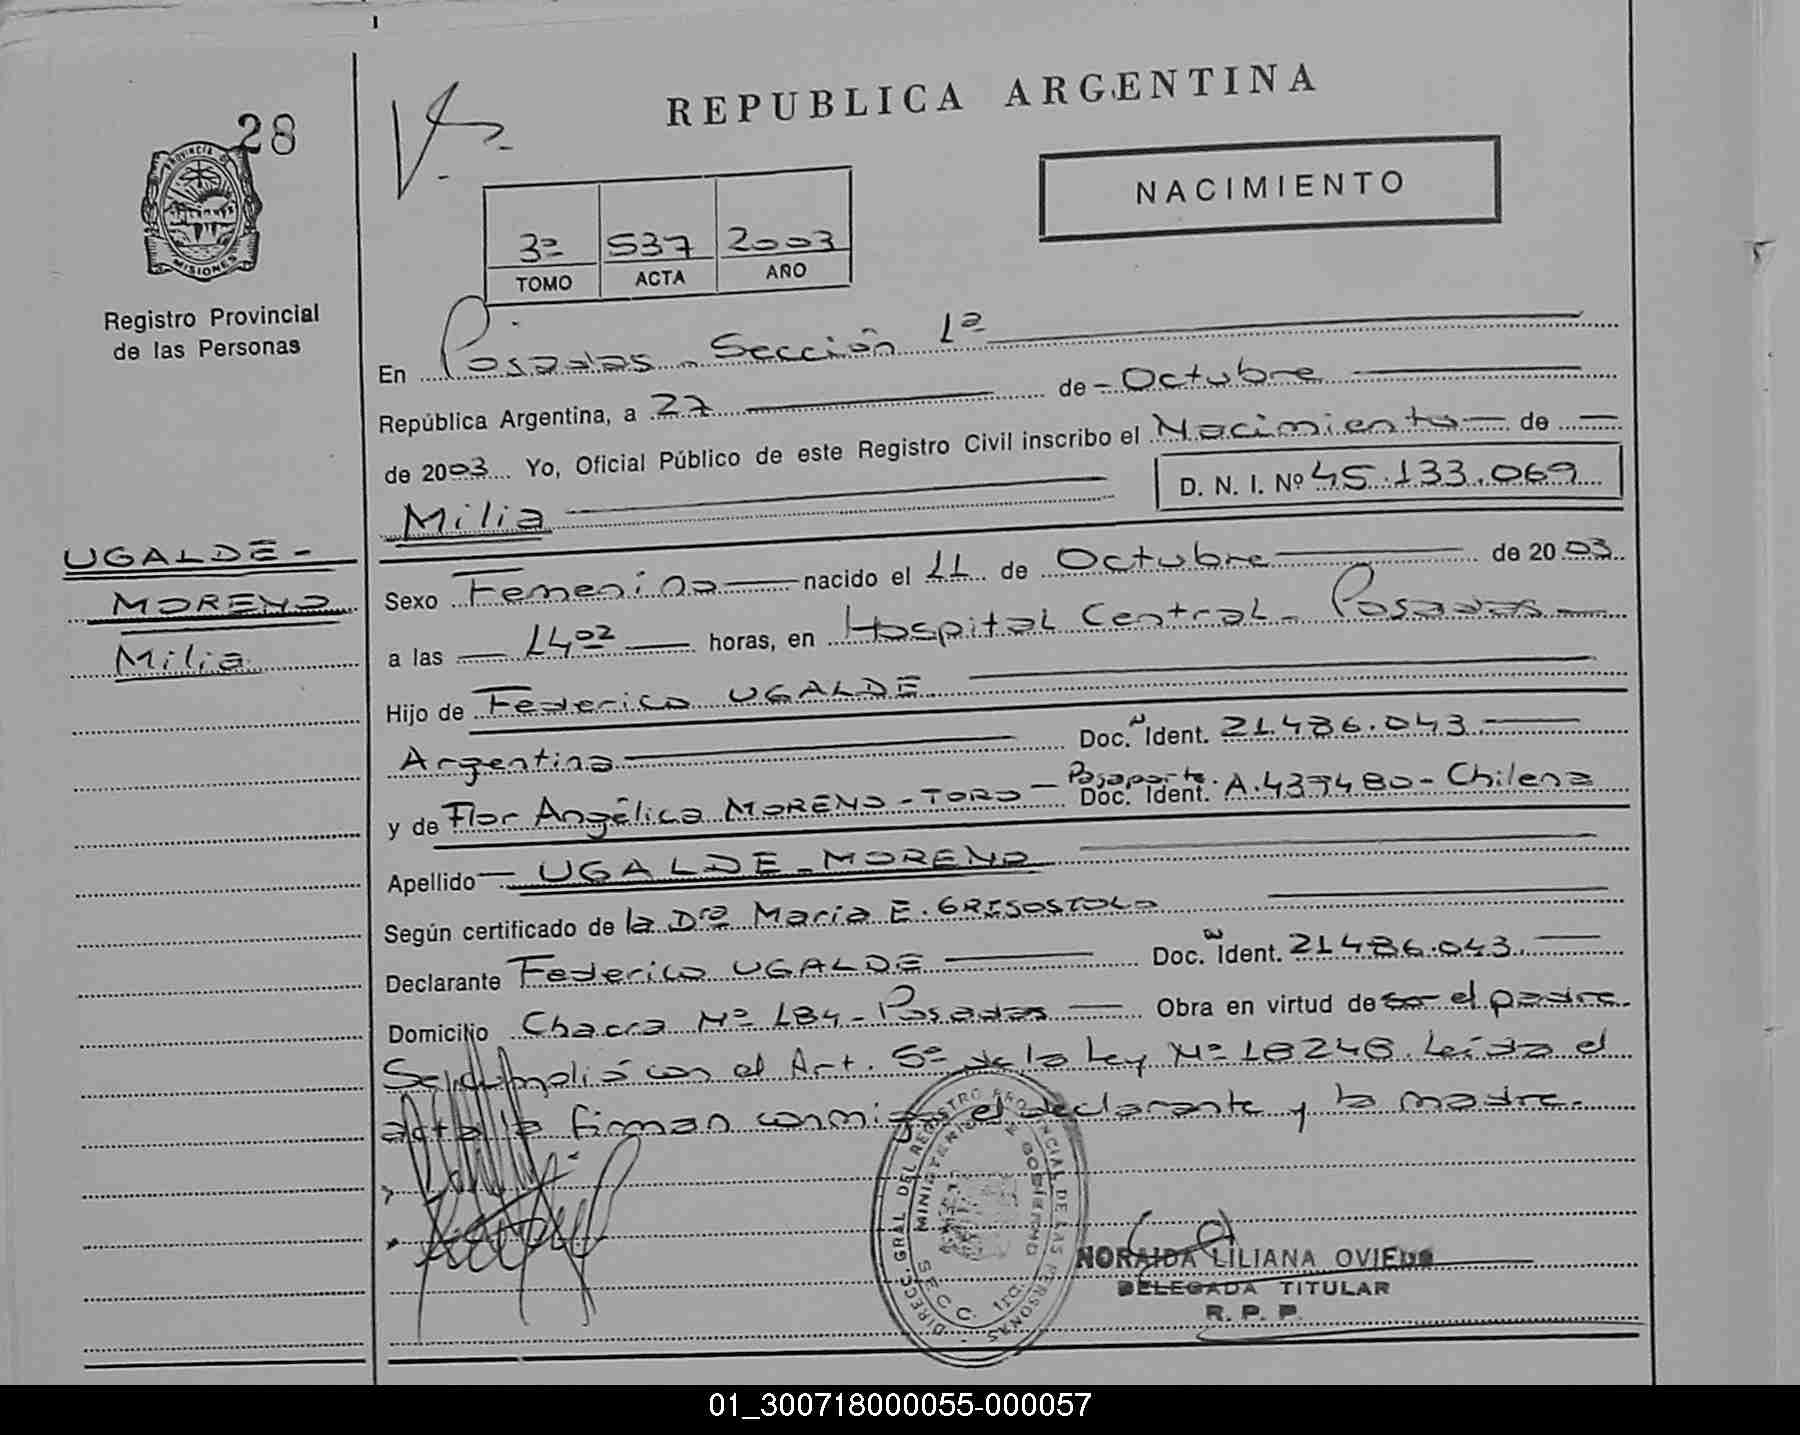 28
PROVINCIA DE
MISIONES
Registro Provincial
de las Personas
UGALDE-
MORENO
Milia
REPUBLICA ARGENTINA
NACIMIENTO
3º 537 2003
TOMO ACTA AÑO
En Posadas - Sección 1ª
República Argentina, a 27 de - Octubre
de 2003 Yo, Oficial Público de este Registro Civil inscribo el Nacimiento de
Milia D. N. I. Nº 45.133.069
Sexo Femenino nacido el 11 de Octubre de 2003
a las 14 02 horas, en Hospital Central - Posadas
Hijo de Federico UGALDE
Argentino Doc. Ident. 21.486.043
y de Flor Angélica MORENO-TORO - Pasaporte Doc. Ident. A.437480 - Chilena
Apellido UGALDE-MORENO
Según certificado de la Dra María E. GRISOSTOLO
Declarante Federico UGALDE Doc. Ident. 21486.043
Domicilio Chacra Nº 184 - Posadas Obra en virtud de ser el padre.
Se cumplió con el Art. 5º de la Ley Nº 18248. Leída el
acta la firman conmigo el declarante y la madre.
DIRECC. GRAL DEL REGISTRO PROVINCIAL DE LAS PERSONAS
MINISTERIO DE GOBIERNO
SECC. 1ra.
NORAIDA LILIANA OVIEDO
DELEGADA TITULAR
R. P. P.
01_300718000055-000057